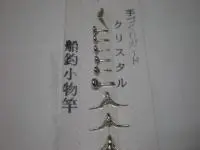 手づくりガイド
クリスタル
船釣小物竿